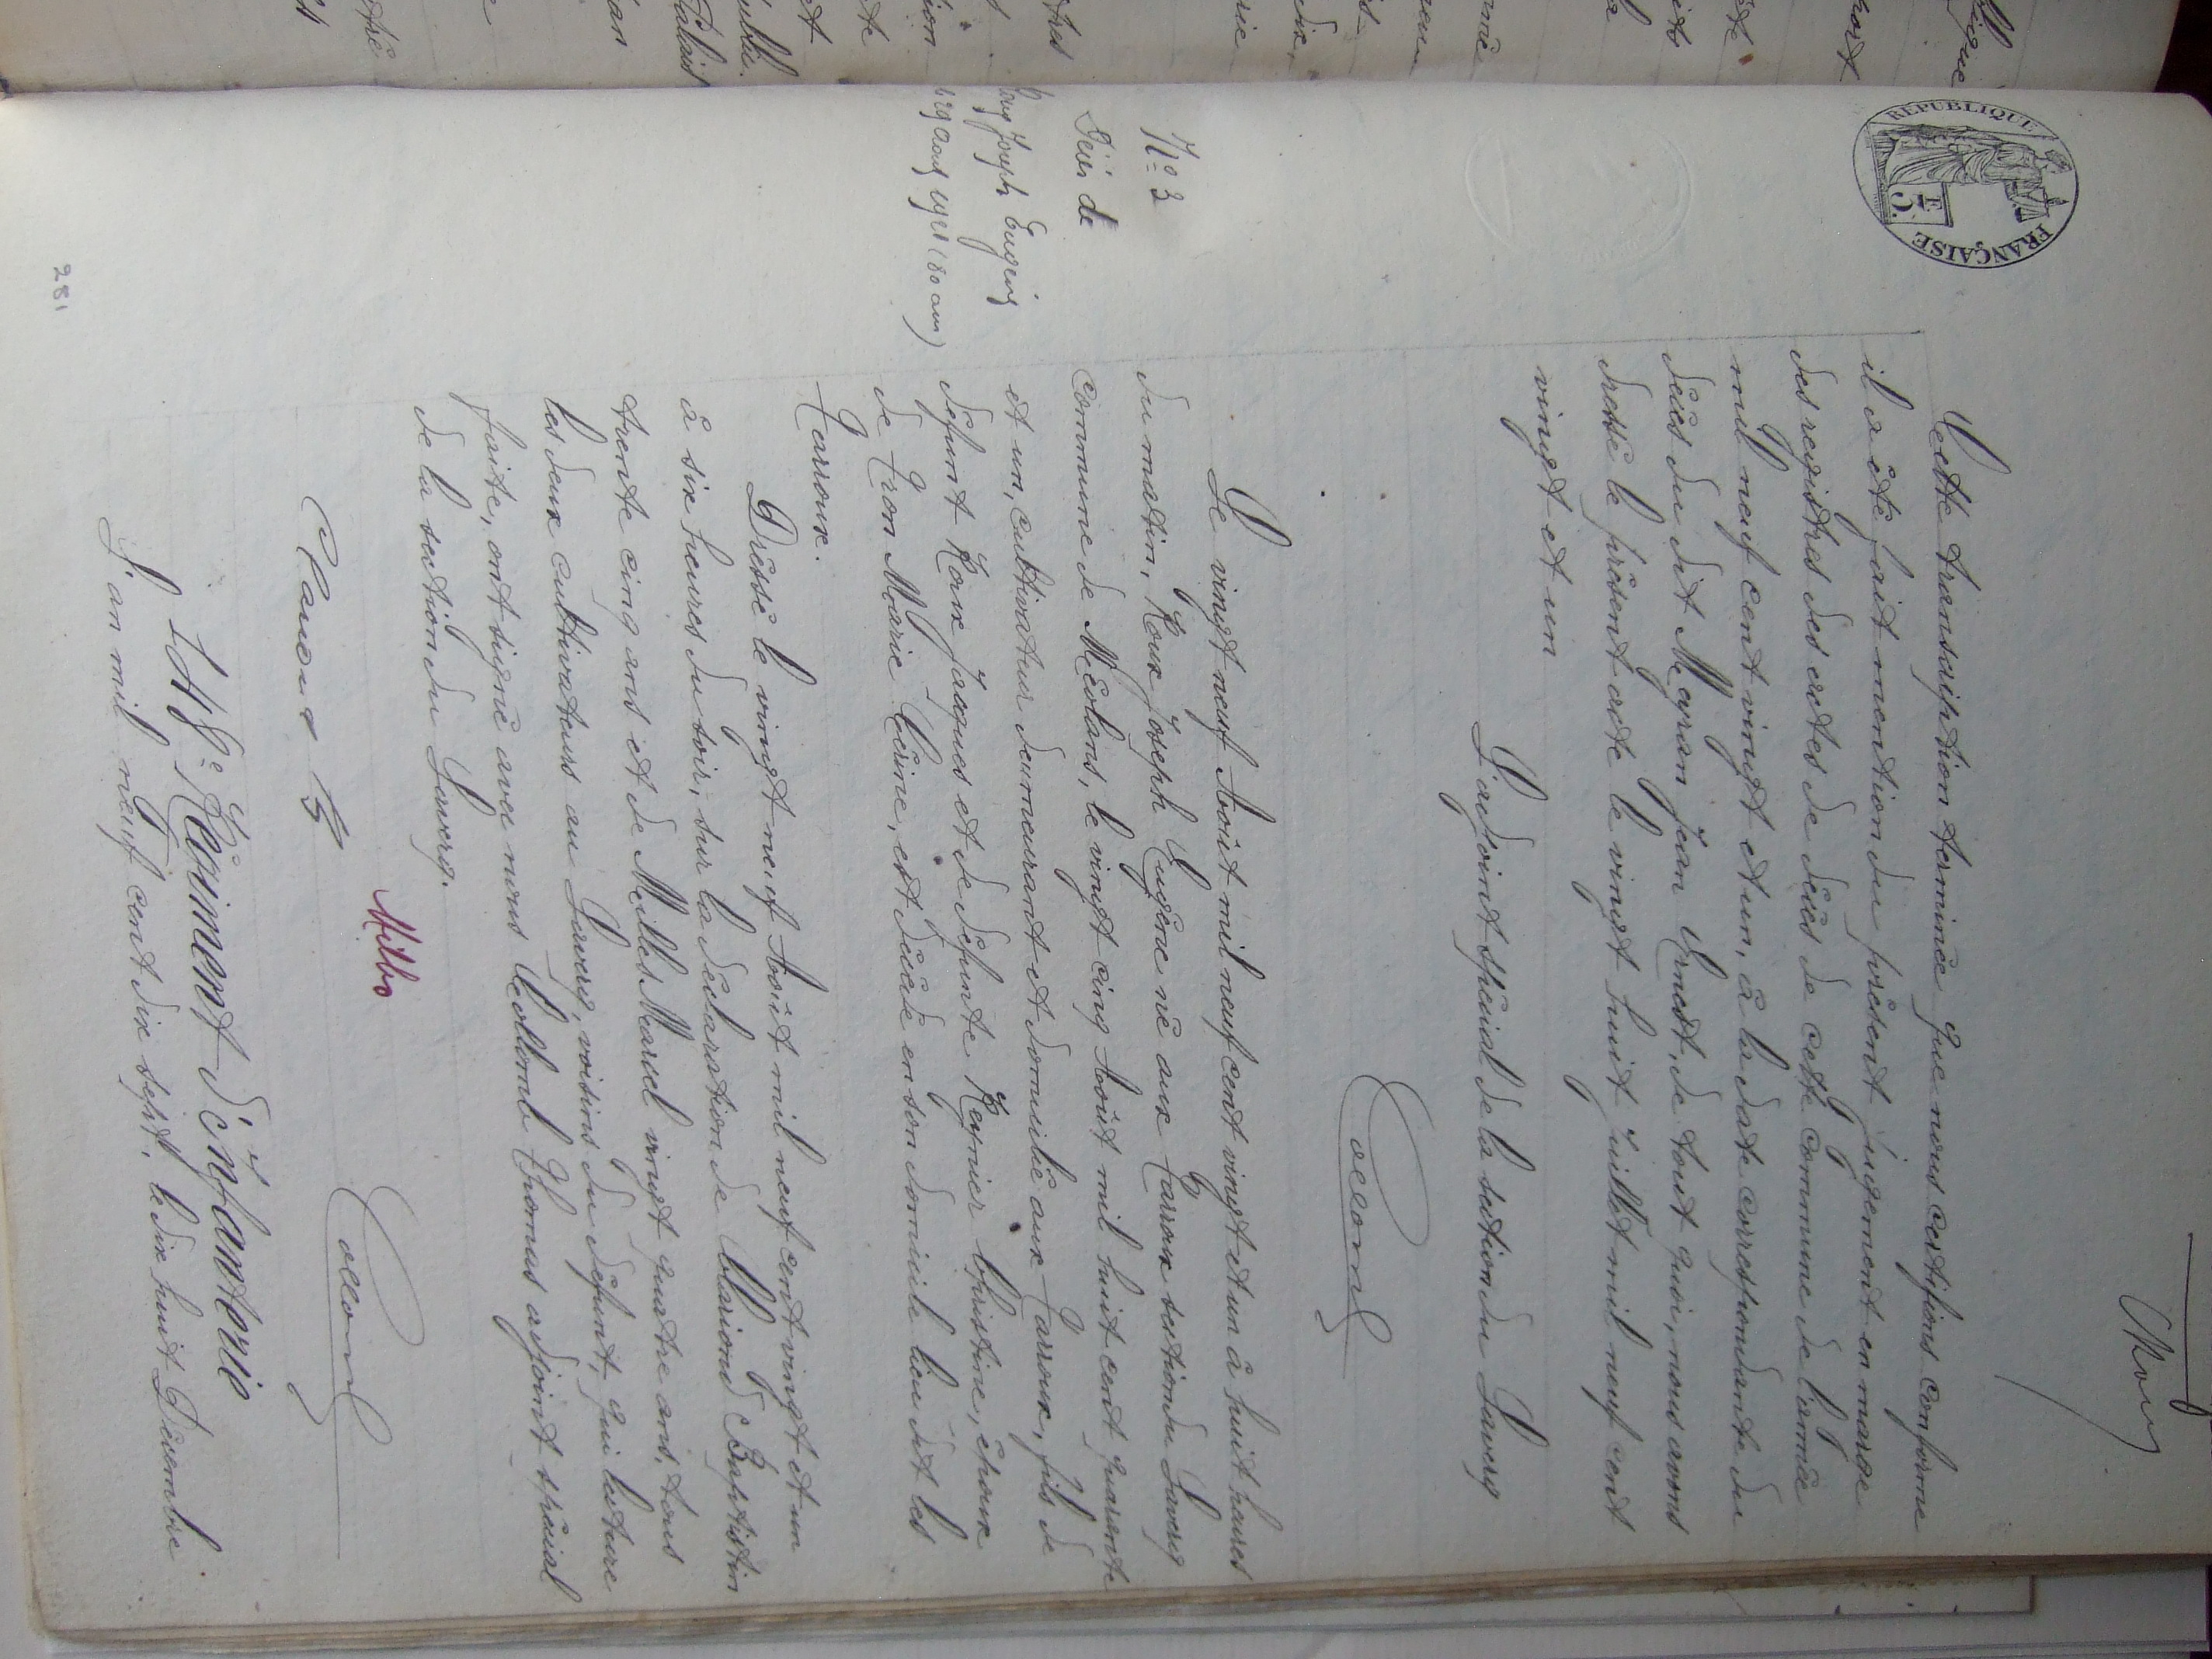 RÉPUBLIQUE FRANÇAISE
Cette transcription terminée que nous certifions conforme
il a été fait mention du présent jugement en marge
des registres des actes de décès de cette commune de l'année
mil neuf cent vingt et un, à la date correspondante du
décès du dit Meyran Jean Ernest, de tout quoi, nous avons
dressé le présent acte le vingt huit juillet mil neuf cent
vingt et un
L'adjoint spécial de la section du Laverq
Collomb
N° 3
Décès de
Roux Joseph Eugène
29 août 1921 (80 ans)
Le vingt neuf Août mil neuf cent vingt et un à huit heures
du matin, Roux Joseph Eugène né aux Zarroux section du Laverq
commune de Méolans, le vingt cinq Août mil huit cent quarante
et un, cultivateur demeurant et domicilié aux Zarroux, fils de
défunt Roux Jacques et de défunte Reynier Christine, époux
de Tron Marie Césarine, est décédé en son domicile lieu dit les
Zarroux.
Dressé le vingt neuf Août mil neuf cent vingt et un
à six heures du soir, sur la déclaration de Clariond Baptistin
trente cinq ans et de Meilles Marcel vingt quatre ans, tous
les deux cultivateurs au Laverq, voisins du défunt, qui lecture
faite, ont signé avec nous Collomb Thomas adjoint spécial
de la section du Laverq.
Clariond B
Milles
Collomb
141e Régiment d'infanterie
L'an mil neuf cent dix sept, le dix huit Décembre
281